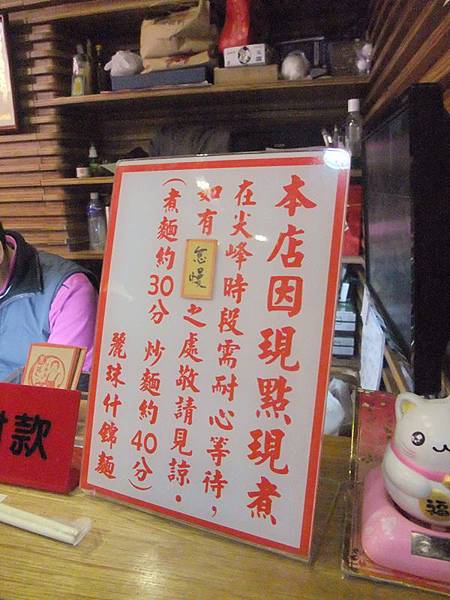 本店因現點現煮
在尖峰時段需耐心等待，
如有怠慢之處敬請見諒。
（煮麵約30分 炒麵約40分）
麗珠什錦麵
付款
福